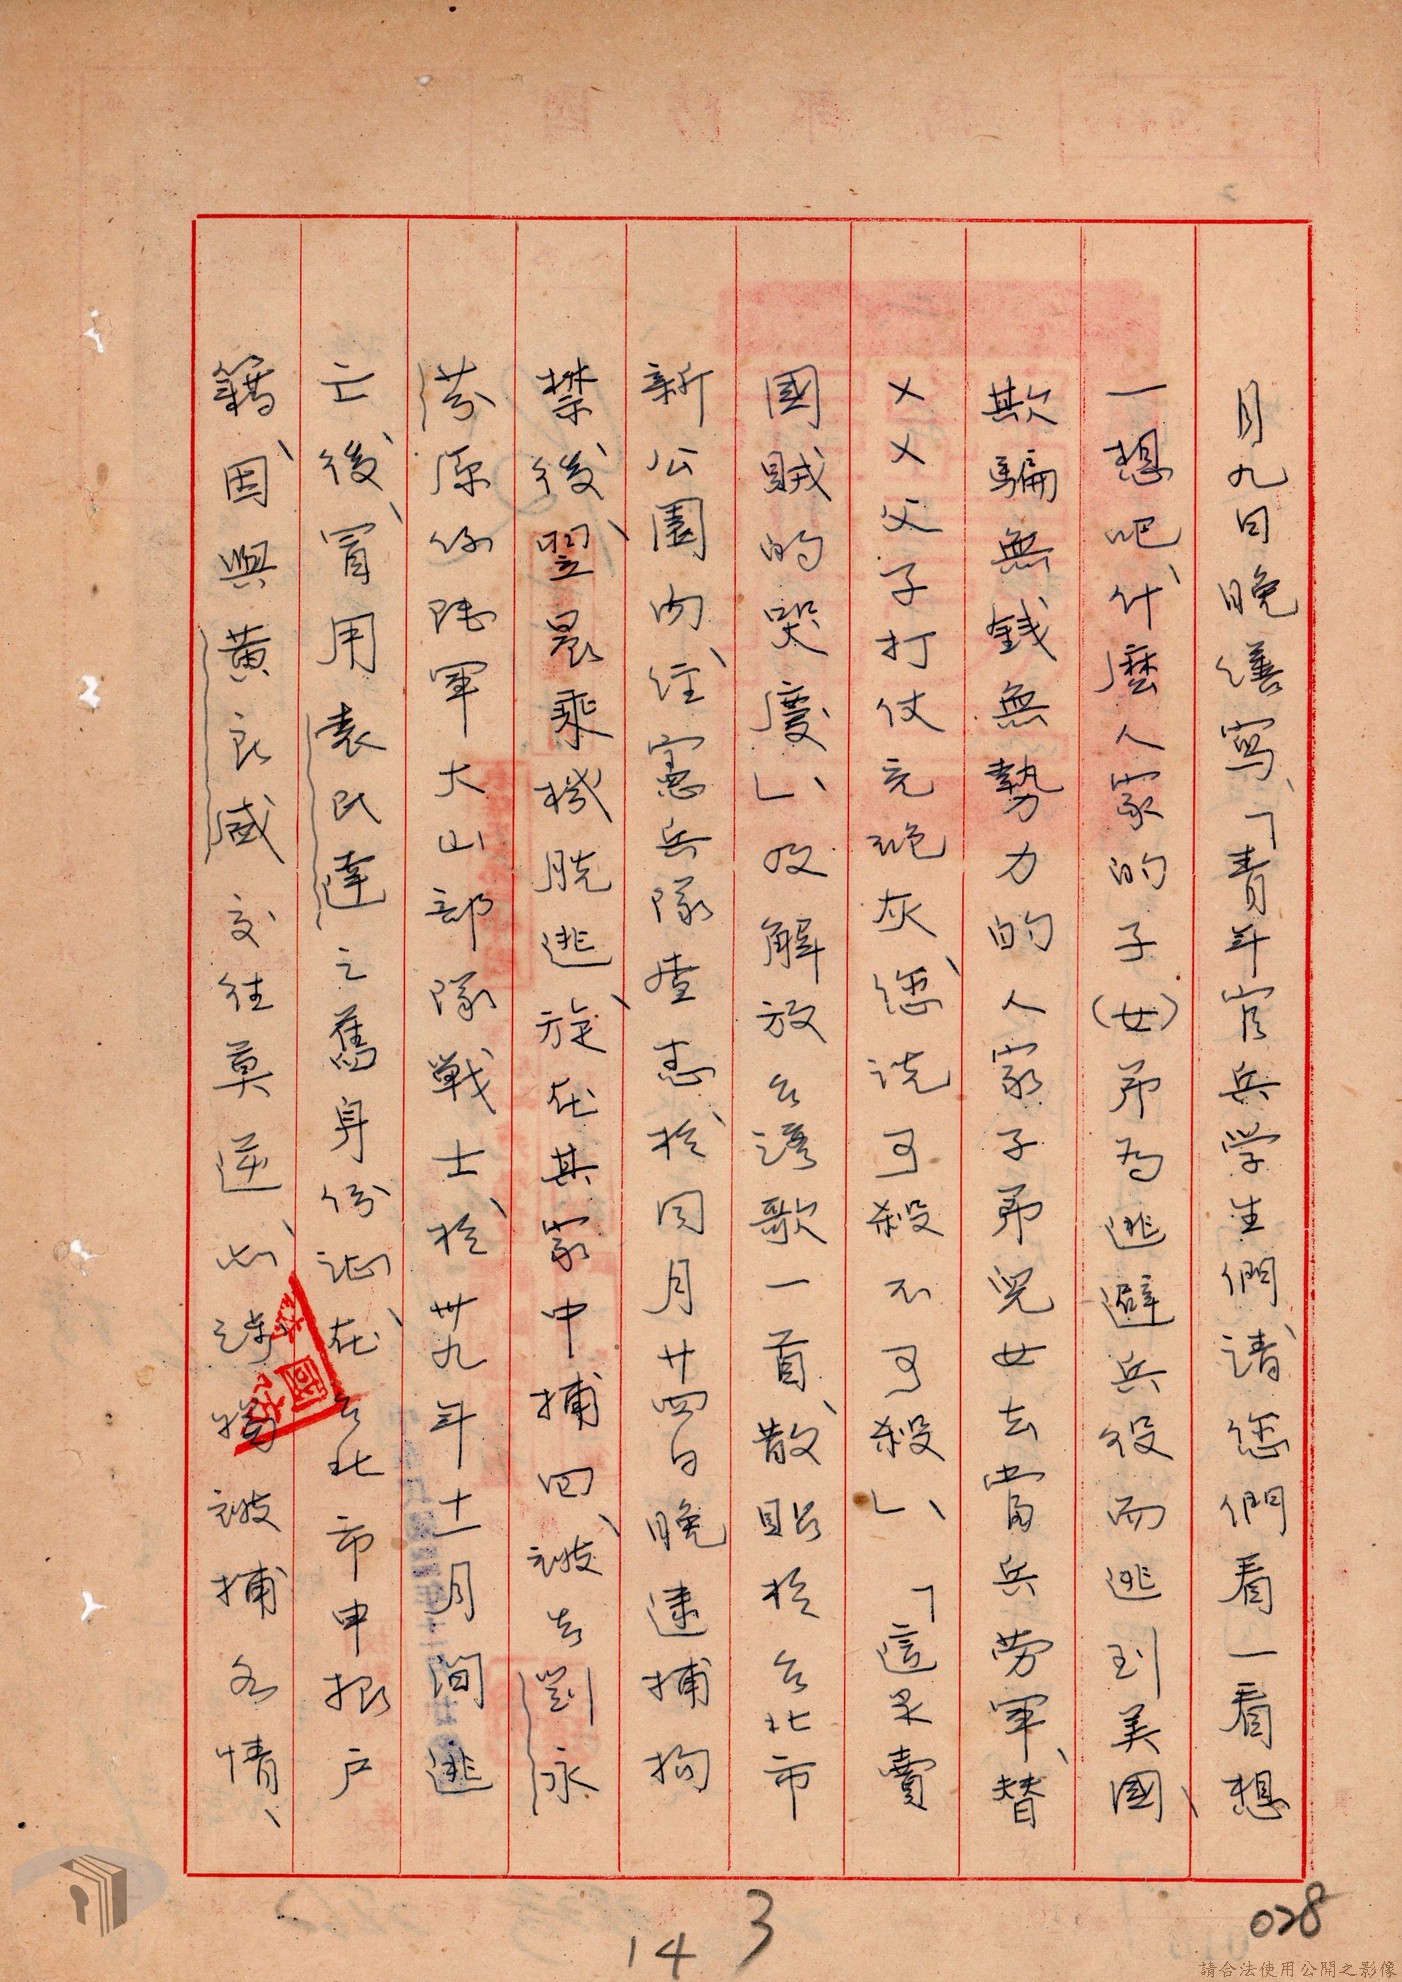 月九日晚繕寫、「青年官兵学生們、請您們看一看想
一想吧、什麼人家的子(女)弟為逃避兵役而逃到美國、
欺騙無錢無勢力的人家子弟兒女去當兵勞軍、替
××父子打仗充砲灰、您説可殺不可殺」、「這是賣
國賊的哭慶」、及解放台湾歌一首、散貼於台北市
新公園內、経憲兵隊查悉、於同月廿四日晚逮捕拘
禁後、翌晨乘機脫逃、旋在其家中捕回、被告劉永
芬原係陸軍大山部隊戰士、於卅九年十一月間逃
亡後、冒用袁民達之舊身份証、在台北市申报户
籍、因與黃良威交往莫逆、以涉嫌被捕各情、
028
3
14
請合法使用公開之影像